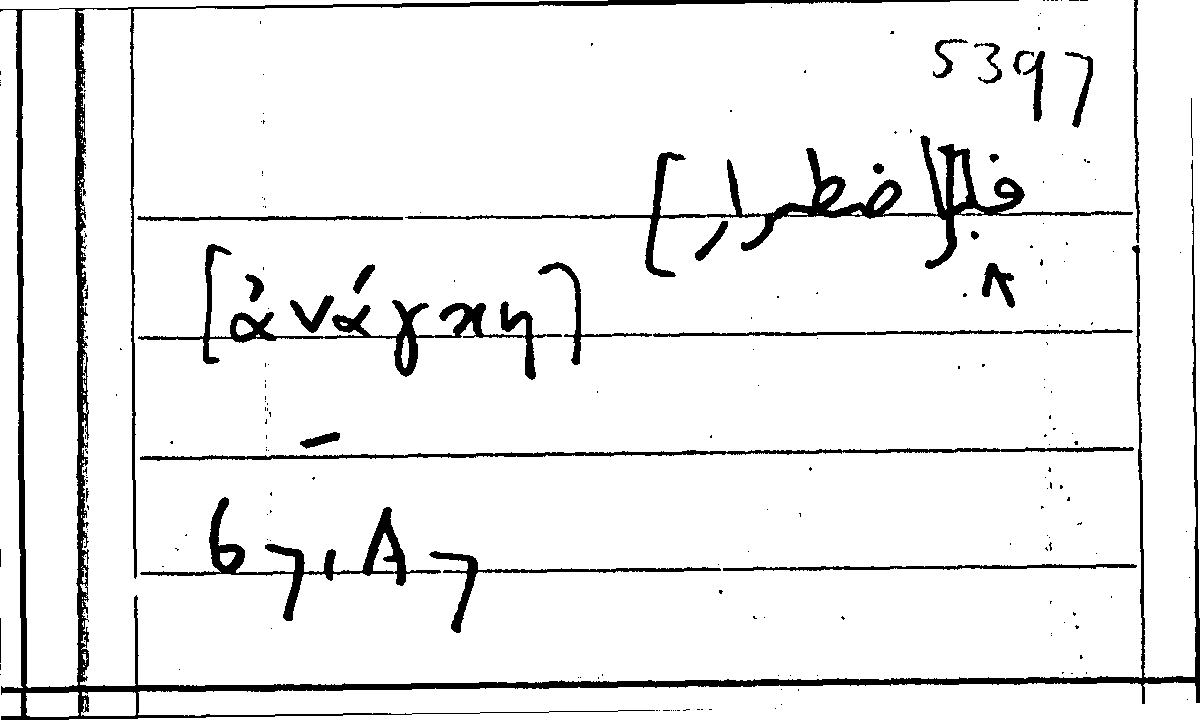 5397
فبا[ضطرار]
٨
[ἀνάγκη]
–
67,A7